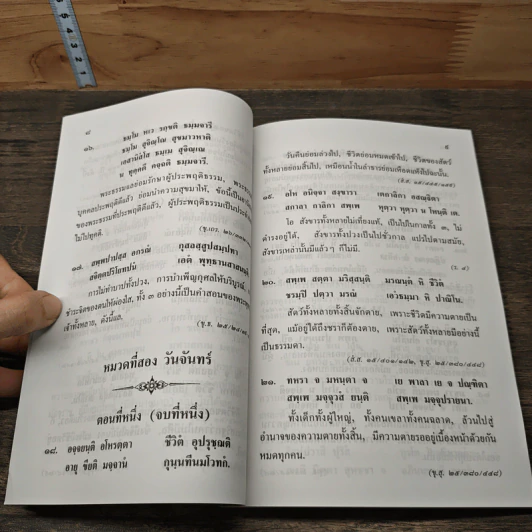 ๘
๑๖. ธมฺโม หเว รกฺขติ ธมฺมจารึ
ธมฺโม สุจิณฺโณ สุขมาวหาติ
เอสานิสํโส ธมฺเม สุจิณฺเณ
น ทุคฺคตึ คจฺฉติ ธมฺมจารี.
พระธรรมแลย่อมรักษาผู้ประพฤติธรรม,
บุคคลประพฤติดีแล้ว ย่อมนำความสุขมาให้, ข้อนี้เป็น
ของพระธรรมที่ประพฤติดีแล้ว, ผู้ประพฤติธรรมเป็นประจำ
ไม่ไปทุคติ.
๑๗. สพฺพปาปสฺส อกรณํ กุสลสฺสูปสมฺปทา
สจิตฺตปริโยทปนํ เอตํ พุทฺธานสาสนํ.
การไม่ทำบาปทั้งปวง, การบำเพ็ญกุศลให้บริบูรณ์,
ชำระจิตของตนให้ผ่องใส, ทั้ง ๓ อย่างนี้เป็นคำสอนของพระพุทธ
เจ้าทั้งหลาย, ดังนี้แล.
หมวดที่สอง วันจันทร์
ตอนที่หนึ่ง (จบที่หนึ่ง)
๑๘. อจฺจยนฺติ อโหรตฺตา ชีวิตํ อุปรุชฺฌติ
อายุ ขียติ มจฺจานํ กุนฺนทีนมฺโวทกํ.
๙
วันคืนย่อมล่วงไป, ชีวิตย่อมหมดเข้าไป, ชีวิตของสัตว์
ทั้งหลายย่อมสิ้นไป, เหมือนน้ำในลำธารย่อมเหือดแห้งไปฉะนั้น.
๑๙. อโห อนิจฺจา สงฺขารา เตกาลิกา อสณฺฐิตา
สกาลา กาลิกา สพฺเพ หุตฺวา หุตฺวา น โหนฺติ เต.
โอ สังขารทั้งหลายไม่เที่ยงแท้, เป็นไปในกาลทั้ง ๓, ไม่
ดำรงอยู่ได้, สังขารทั้งปวงเป็นไปชั่วกาล แปรไปตามสมัย,
สังขารเหล่านั้นมีแล้วๆ ก็ไม่มี.
๒๐. สพฺเพ สตฺตา มริสฺสนฺติ มรณนฺตํ หิ ชีวิตํ
ชรมฺปิ ปตฺวา มรณํ เอวํธมฺมา หิ ปาณิโน.
สัตว์ทั้งหลายทั้งสิ้นจักตาย, เพราะชีวิตมีความตายเป็น
ที่สุด, แม้อยู่ได้ถึงชราก็ต้องตาย, เพราะสัตว์ทั้งหลายมีอย่างนี้
เป็นธรรมดา.
(สํ.ส. ๑๕/๑๔๑/๑๔๒, ขุ.สุ. ๒๕/๓๘๐/๔๔๘)
๒๑. ทหรา จ มหนฺตา จ เย พาลา เย จ ปณฺฑิตา
สพฺเพ มจฺจุวสํ ยนฺติ สพฺเพ มจฺจุปรายนา.
ทั้งเด็กทั้งผู้ใหญ่, ทั้งคนเขลาทั้งคนฉลาด, ล้วนไปสู่
อำนาจของความตายทั้งสิ้น, มีความตายรออยู่เบื้องหน้าด้วยกัน
หมดทุกคน.
(ขุ.สุ. ๒๕/๓๘๐/๔๔๘)